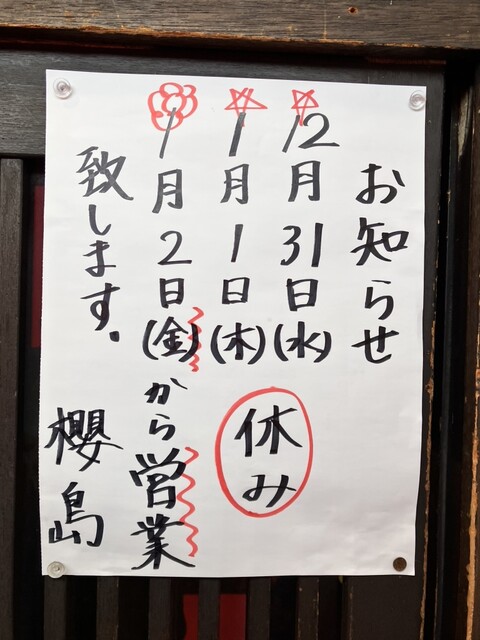 お知らせ
12月31日(水)
1月1日(木)
休み
1月2日(金)から営業
致します.
櫻島